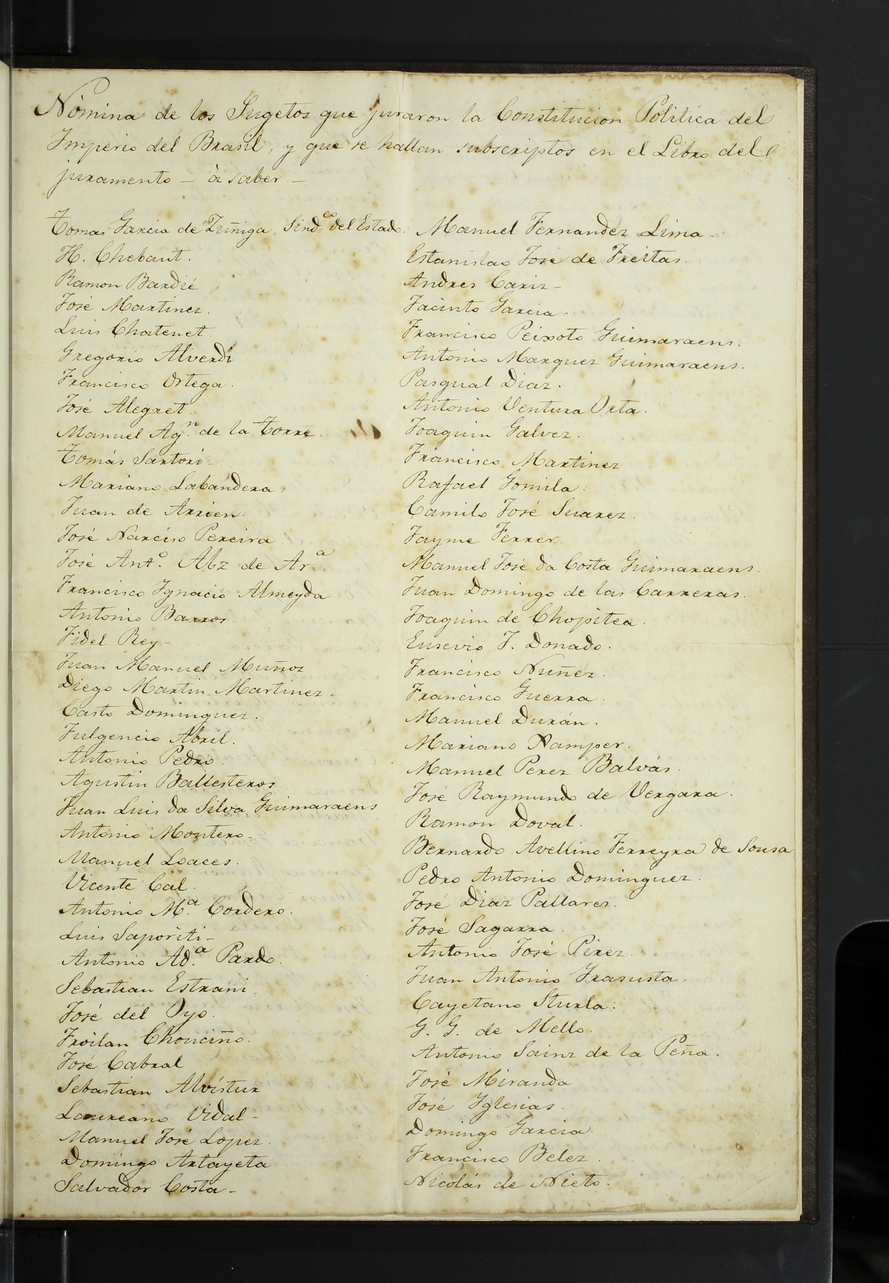 Nómina de los Sugetos que juraron la Constitucion Politica del
Imperio del Brasil, y que se hallan subscriptos en el Libro del
juramento – à saber –
Tomas Garcia de Zuñiga, Sind.co del Estado.
H. Chebaut.
Ramon Bardié
José Martinez.
Luis Chatenet
Gregorio Alverdi
Francisco Ortega.
José Alegret
Manuel Ag.n de la Torre.
Tomás Sartori–
Mariano Labandera.
Juan de Arzen.
José Narciso Pereira
José Ant.o Abz de Ar.a
Francisco Ygnacio Almeyda
Antonio Barros
Fidel Rey–
Juan Manuel Muñoz
Diego Martin Martinez.
Casto Dominguez.
Fulgencio Abril.
Antonio Pedro.
Agustin Ballesteros
Juan Luis da Silva Guimaraens
Antonio Montero–
Manuel Loaces.
Vicente Cal.
Antonio M.a Cordero.
Luis Saporiti–
Antonio Ad.a Pardo.
Sebastian Estrani.
José del Oyo.
Froilan Chouciño.
José Cabral
Sebastian Alvistur
Laureano Vidal–
Manuel José Lopez.
Domingo Artayeta
Salvador Costa–
Manuel Fernandez Lima–
Estanislao José de Freitas.
Andres Cariz–
Jacinto Garcia.
Francisco Peixoto Guimaraens.
Antonio Marquez Guimaraens.
Pasqual Diaz.
Antonio Ventura Orta.
Joaquin Galvez.
Francisco Martinez
Rafael Gomila.
Camilo José Suarez.
Jayme Ferrer.
Manuel José da Costa Guimaraens.
Juan Domingo de las Carreras.
Joaquin de Chopitea.
Eusevio F. Donado.
Francisco Nuñez.
Francisco Guerra.
Manuel Durán.
Mariano Xamper.
Manuel Perez Balvás.
José Raymundo de Vergara.
Ramon Doval.
Bernardo Avellino Ferreyra de Sousa
Pedro Antonio Dominguez.
José Diaz Pallares.
José Sagarra.
Antonio José Pirez.
Juan Antonio Frasusta.
Cayetano Sturla.
G. G. de Mello.
Antonio Sainz de la Peña.
José Miranda
José Yglesias.
Domingo Garcia.
Francisco Belez.
Nicolás de Nieto.